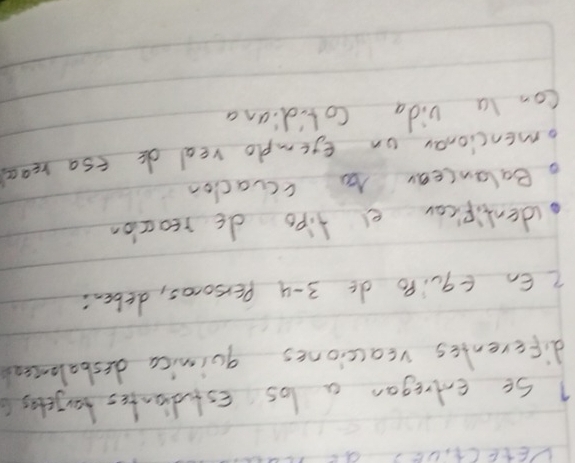 Detectives de
1 Se entregan a los Estudiantes tarjetas
diferentes reacciones quimica desbalancea
2 En Equipo de 3-4 Personas, deben:
• identificar el tipo de reacción
• Balancear la ecuación
• mencionar un Ejemplo real de Esa reacc
con la vida cotidiana